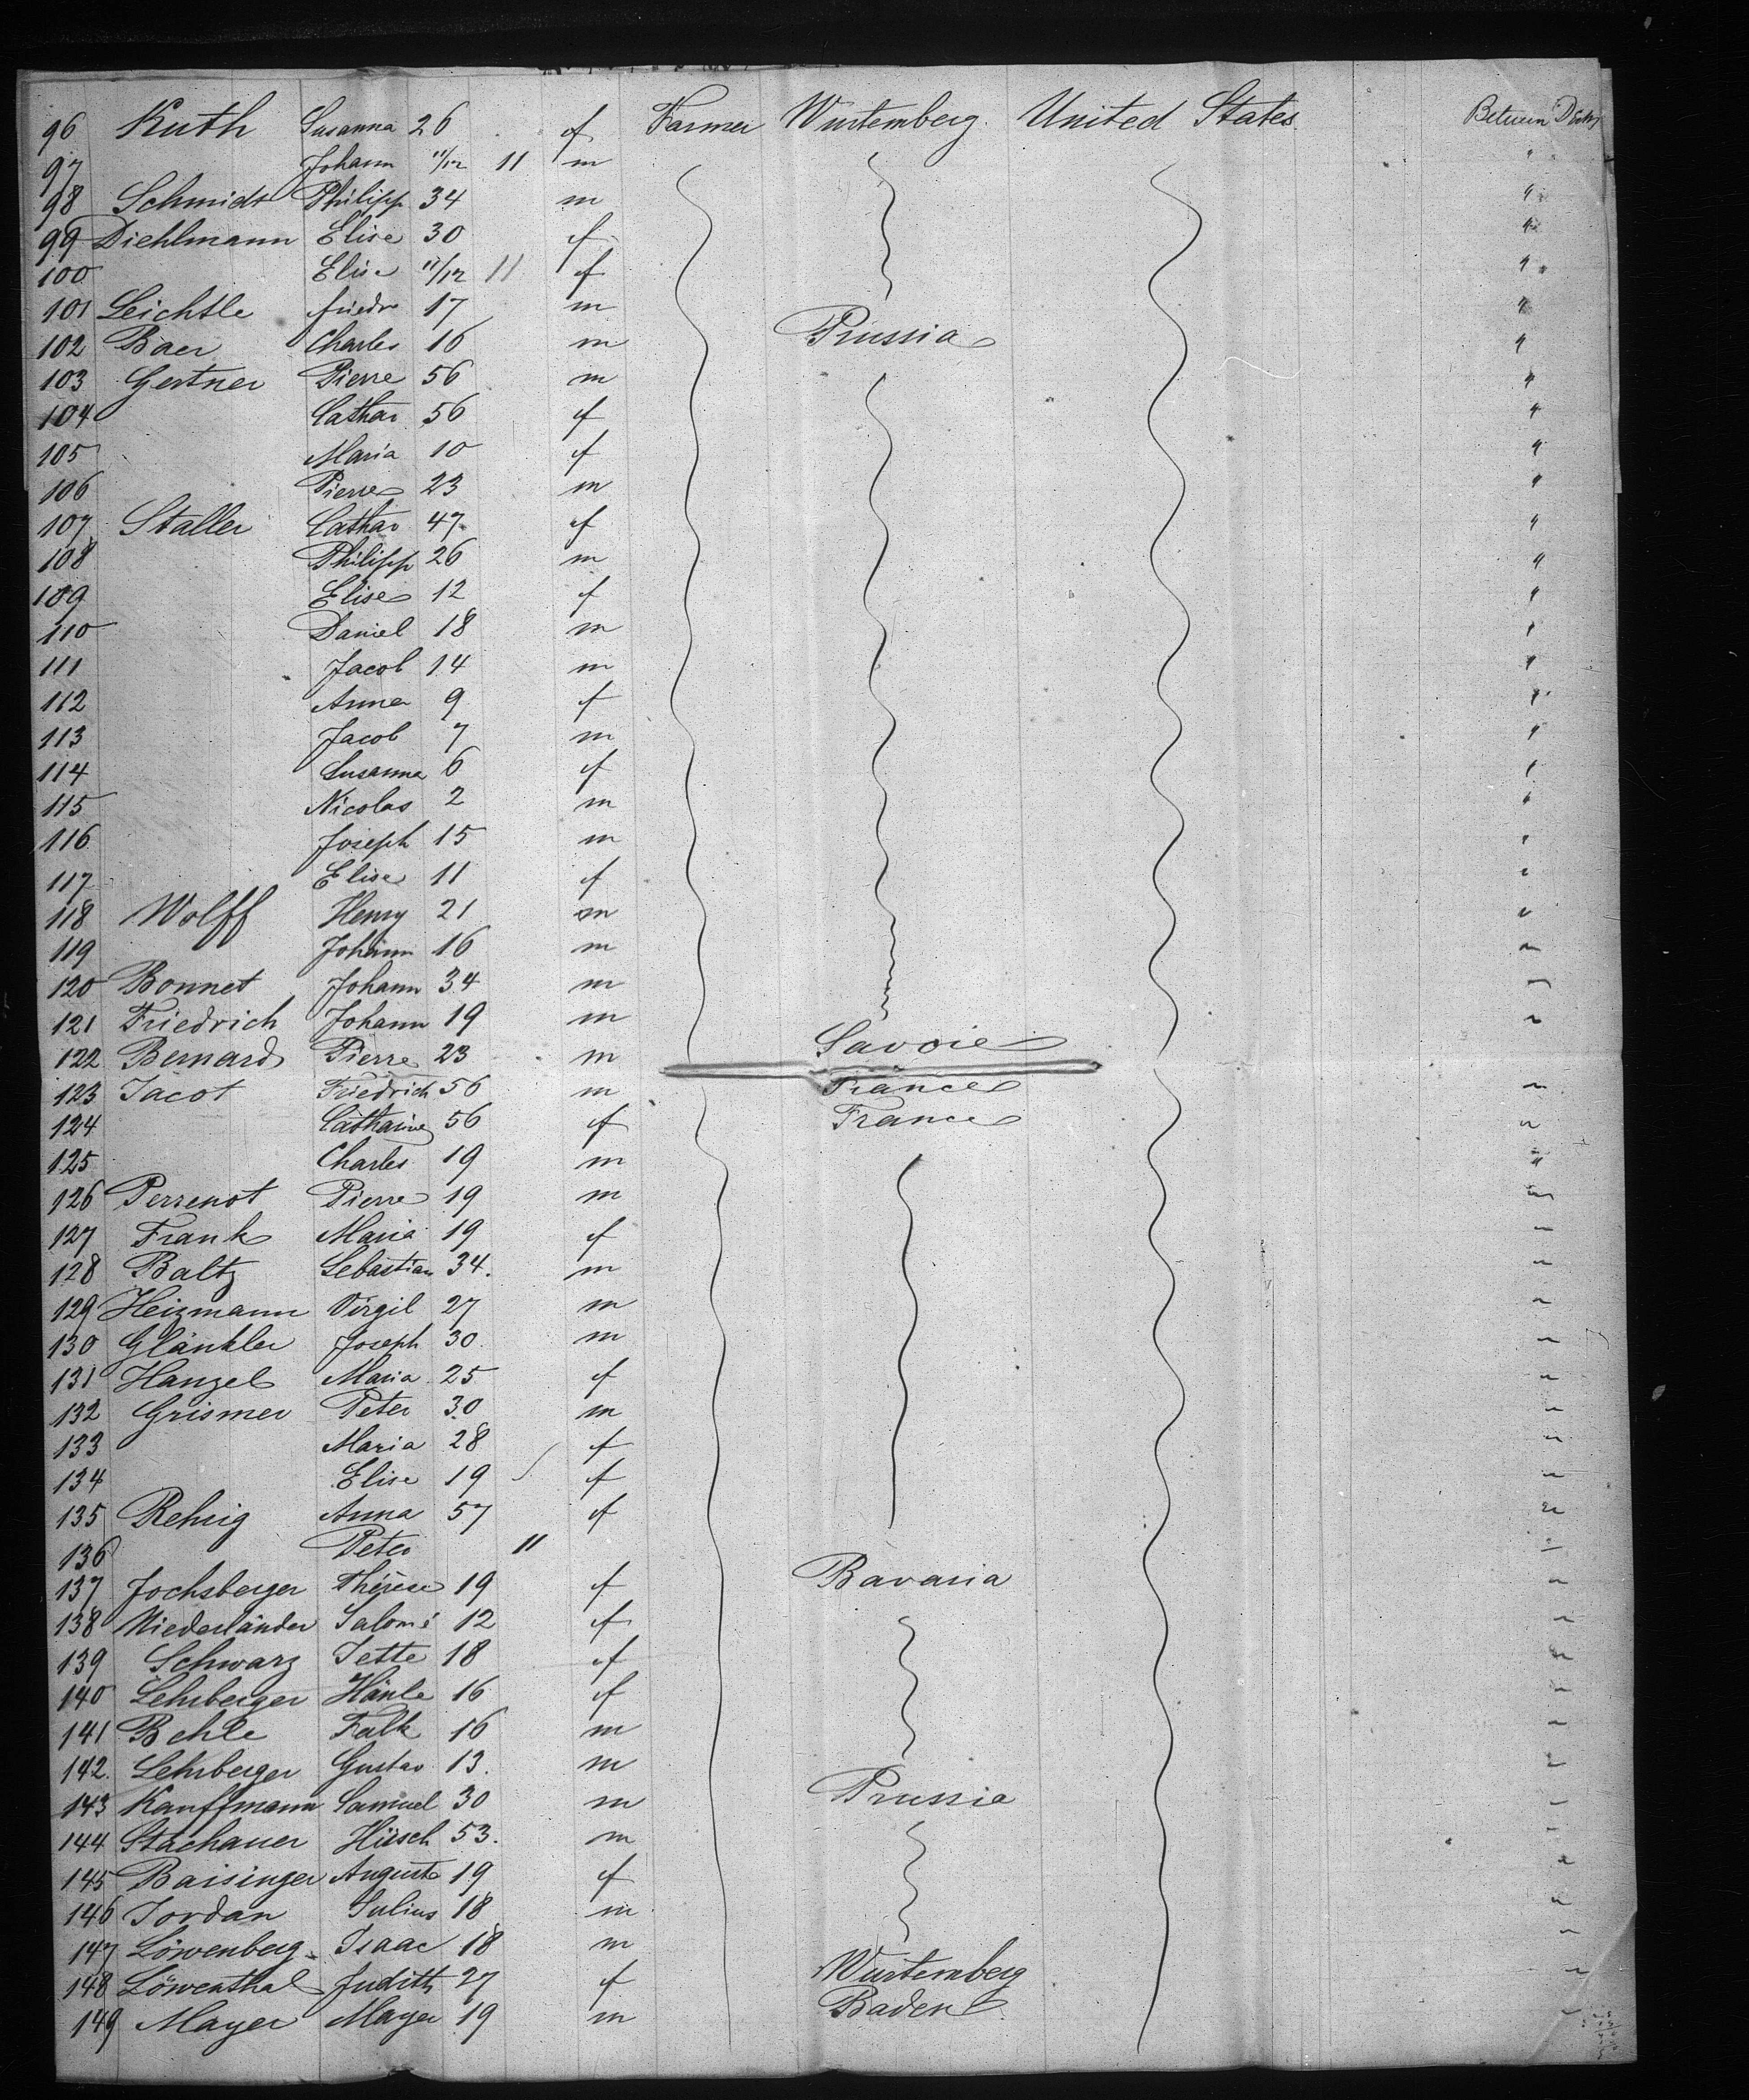 96 Kuth Susanna 26 f Farmer Wurtemberg. United States. Between Decks
97 Johann 11/12 11 m "
98 Schmidt Philipp 34 m "
99 Diehlmann Elise 30 f "
100 Elise 11/12 11 f "
101 Leichtle friedr 17 m "
102 Baer Charles 16 m Prussia "
103 Gertner Pierre 56 m "
104 Cathar 56 f "
105 Maria 10 f "
106 Pierre 23 m "
107 Staller Cathar 47 f "
108 Philipp 26 m "
109 Elise 12 f "
110 Daniel 18 m "
111 Jacob 14 m "
112 Anna 9 f "
113 Jacob 7 m "
114 Susanna 6 f "
115 Nicolas 2 m "
116 Joseph 15 m "
117 Elise 11 f "
118 Wolff Henry 21 m "
119 Johann 16 m "
120 Bonnet Johann 34 m "
121 Friedrich Johann 19 m "
122 Bernard Pierre 23 m Savoie
123 Jacot Friedrich 56 m France "
124 Catharine 56 f France "
125 Charles 19 m "
126 Perrenot Pierre 19 m "
127 Frank Maria 19 f "
128 Baltz Sebastian 34. m "
129 Heizmann Virgil 27 m "
130 Glänkler Joseph 30. m "
131 Hanzel Maria 25 f "
132 Grismer Peter 30 m "
133 Maria 28 f "
134 Elise 19 f "
135 Rehrig Anna 57 f "
136 Peter 11 "
137 Jochsberger Thérese 19 f Bavaria "
138 Niederländer Salomé 12 f "
139 Schwarz Jette 18 f "
140 Lehrberger Hänle 16 f "
141 Behle Falk 16 m "
142. Lehrberger Gustav 13. m "
143 Kauffmann Samuel 30 m Prussia "
144 Stachauer Hirsch 53. m "
145 Baisinger Auguste 19 f "
146 Jordan Julius 18 m "
147 Löwenberg Isaac 18 m "
148 Löwenthal Judith 27 f Wurtemberg "
149 Mayer Mayer 19 m Baden "